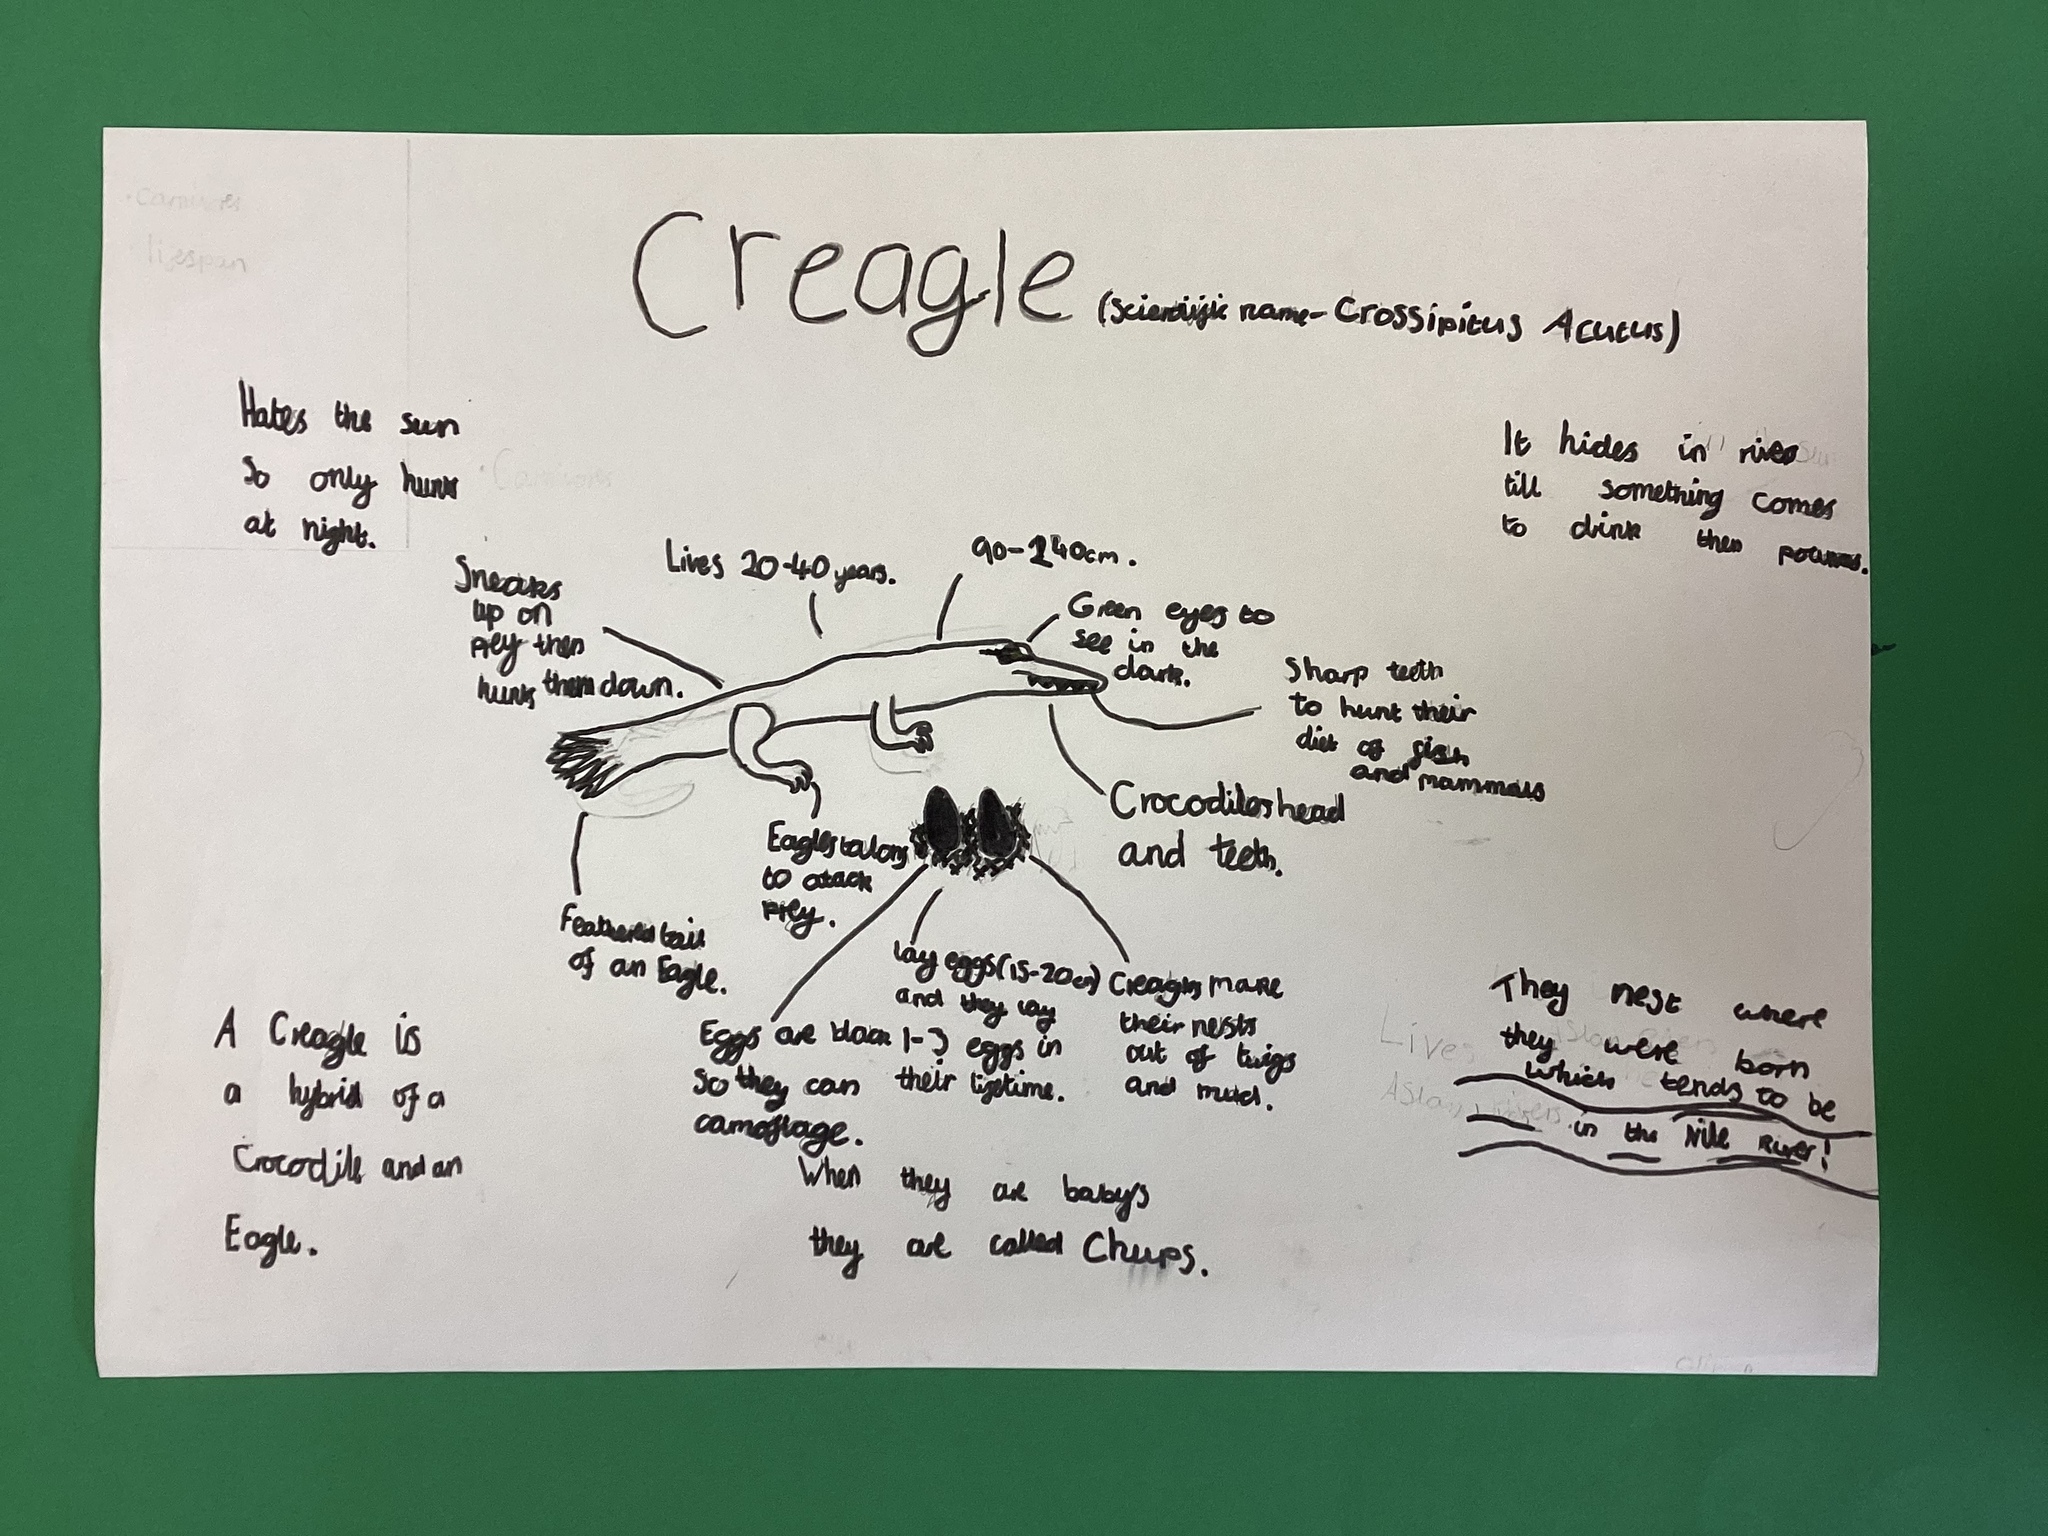 Creagle (Scientific name- Crossipitus Acutus)
Hates the sun
so only hunts
at night.
It hides in river
till something comes
to drink then pounces.
Sneaks
up on
prey then
hunts them down.
Lives 20-40 years.
90-240cm.
Green eyes to
see in the
dark.
Sharp teeth
to hunt their
diet of fish
and mammals
Crocodiles head
and teeth.
Eagles talons
to attack
prey.
Feathered tail
of an Eagle.
A Creagle is
a hybrid of a
Crocodile and an
Eagle.
Eggs are black
so they can
camoflage.
lay eggs (15-20cm)
and they lay
1-3 eggs in
their lifetime.
Creagles make
their nests
out of twigs
and mud.
When they are baby's
they are called Chups.
They nest where
they were born
which tends to be
in the Nile River!
Carnivores
lifespan
Carnivores
Lives
Asian rivers